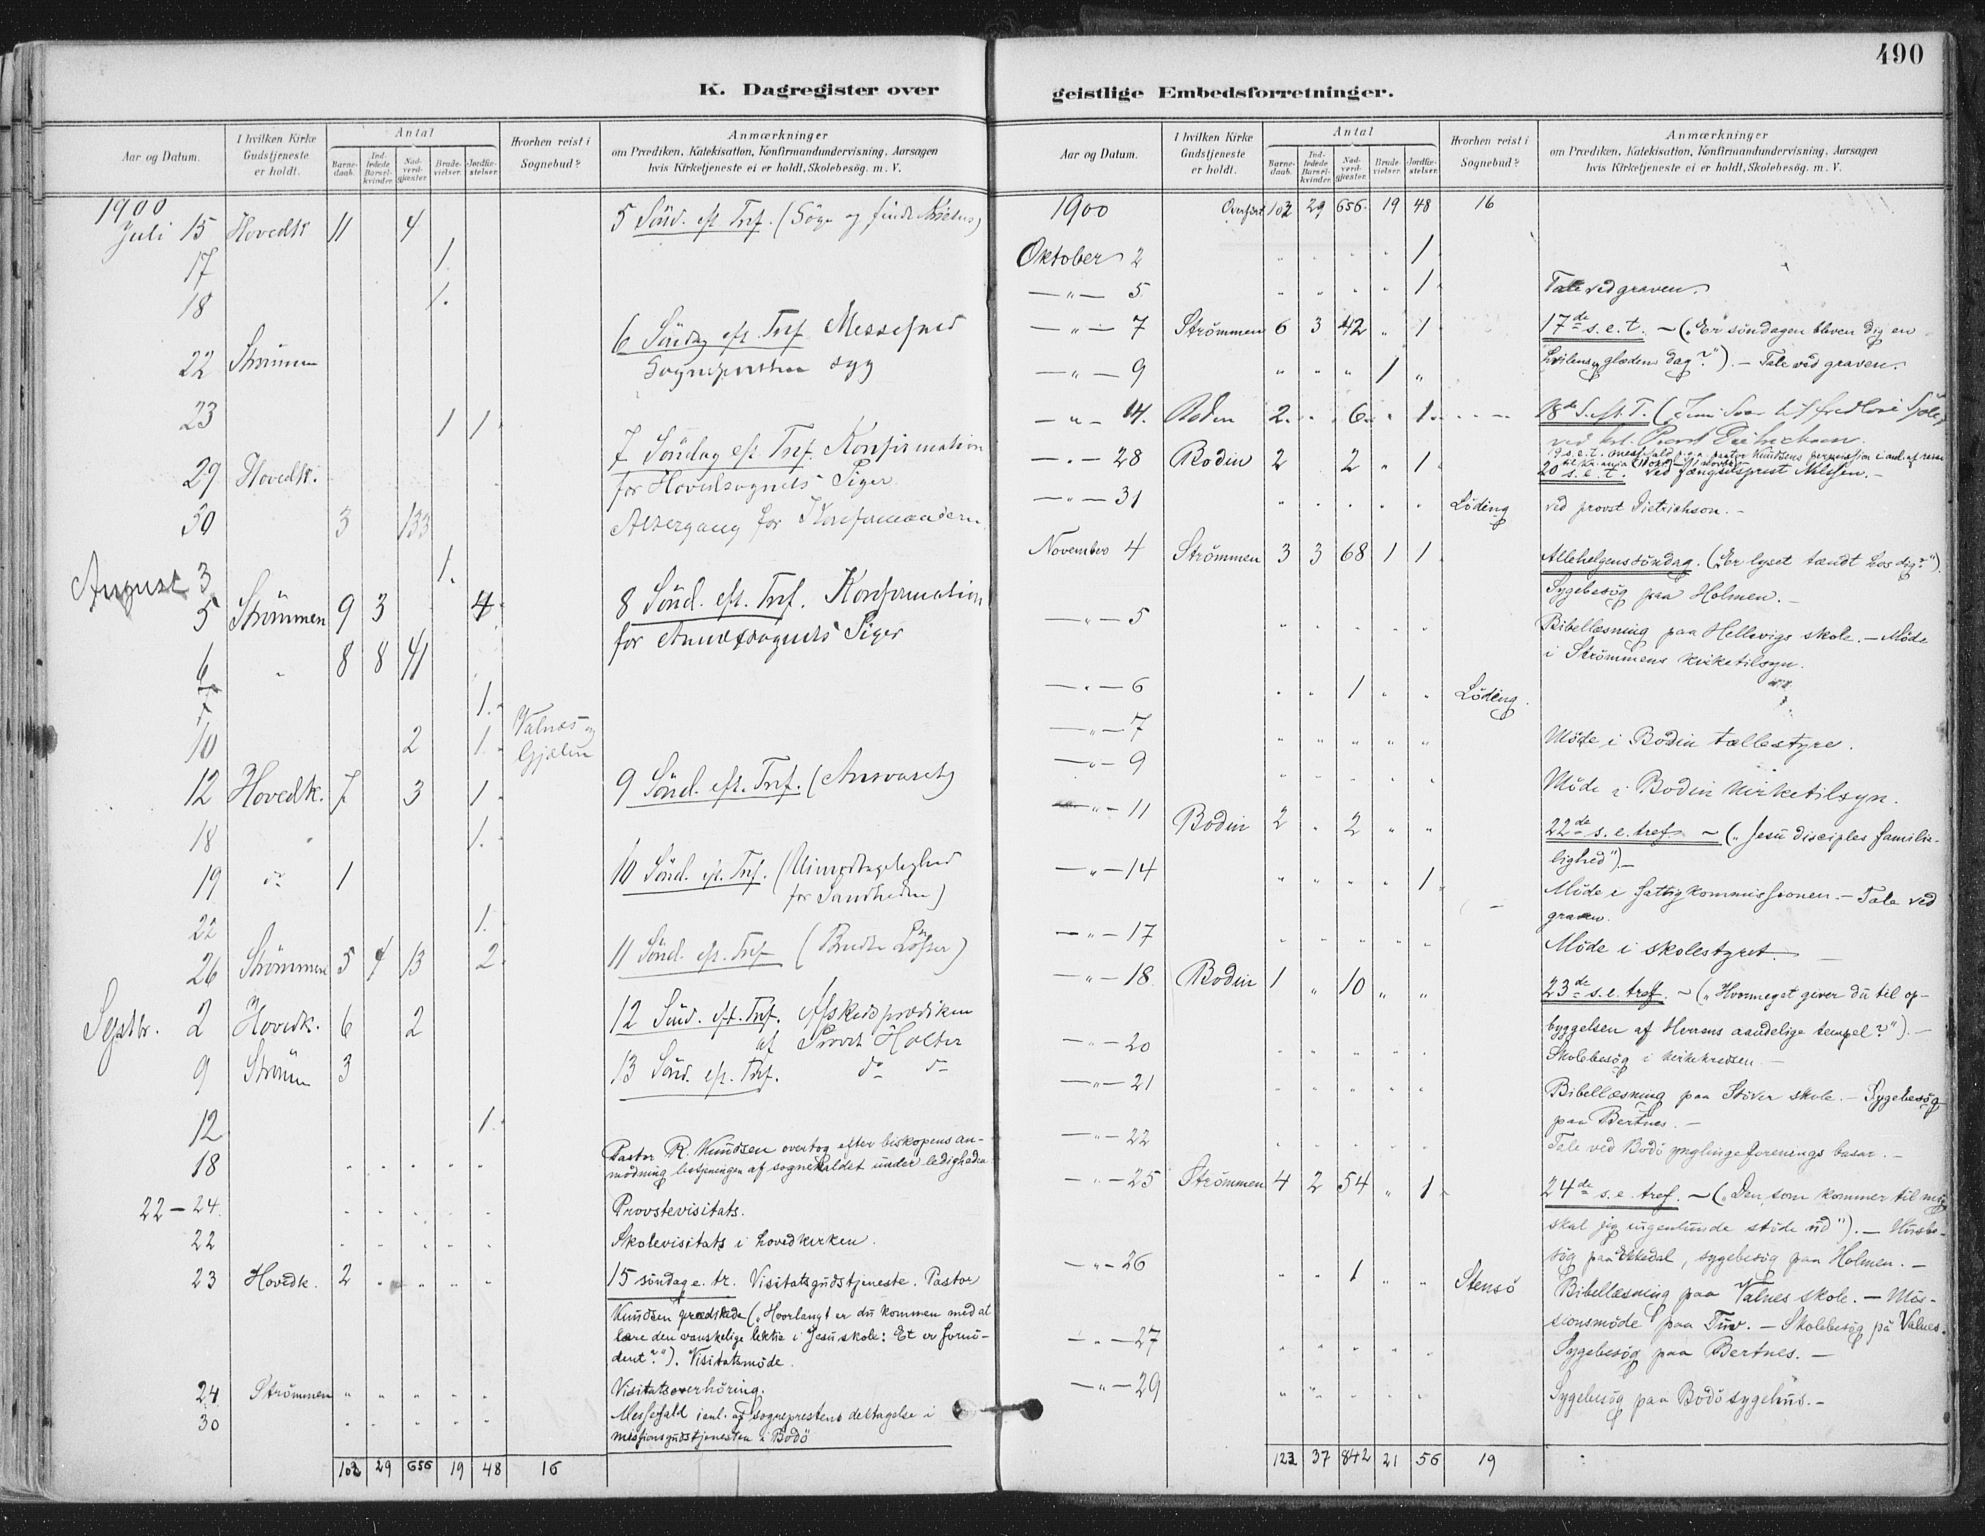 490
K. Dagregister over
geistlige Embedsforretninger.
Aar og Datum.
I hvilken Kirke Gudstjeneste er holdt.
Antal
Barne-daab. Ind-ledede Barsel-kvinder. Nad-verd-gjæster. Brude-vielser. Jordfæ-stelser.
Hvorhen reist i Sognebud?
Anmærkninger
om Prædiken, Katekisation, Konfirmandundervisning, Aarsagen
hvis Kirketjeneste ei er holdt, Skolebesøg. m. V.
1900
Juli 15 Hovedk 11 4 5 Sönd. ef. Tref. (Søge og finde
17 1.
18 1.
22 Strømmen 6 Söndag ef. Tref. Messefald
Sognepresten syg
23 1 1
29 Hovedk. 7 Söndag ef. Tref. Konfirmation
for Hovedsognets Piger
30 3 133 Altergang for Konfirmanderne
August 3 1.
5 Strømmen 9 3 4. 8 Sönd. ef. Tref. Konfirmation
for Annexsognets Piger
6 " 8 8 41
1.
10 2 1. Valnes og
Gjælen
12 Hovedk. 7 3 1. 9 Sönd. ef. Tref. (Ansvaret)
18 " 1.
19 do 1 10 Sönd. ef. Tref. (Uimodtagelighed
for Sandheden)
22 1.
26 Strømmen 5 4 13 2. 11 Sönd. ef. Tref
Septbr. 2 Hovedk. 6 2 12 Sönd. ef. Tref. Afskedsprædiken
af Provst Holter
9 Strømm 3 13 Sönd. ef. Tref. do do
12 1.
18 Pastor R. Knudsen overtog efter biskopens an-
modning betjeningen af sognekaldet under ledigheden
22-24 Provstevisitats.
22 Skolevisitats i hovedkirken.
23 Hovedk. 2 " " " " 15 söndag e. tr. Visitatsgudstjeneste. Pastor
Knudsen prædikede („Hvorlangt er du kommen med at
lære den vanskelige lektie i Jesu skole: Et er fornö-
dent?"). Visitatsmöde.
24 Strømmen " " " " " Visitatsoverhöring.
30 Messefald i anl. af sogneprestens deltagelse i
missionsgudstjenesten i Bodö
102 29 656 19 48 16
Aar og Datum.
I hvilken Kirke Gudstjeneste er holdt.
Antal
Barne-daab. Ind-ledede Barsel-kvinder. Nad-verd-gjæster. Brude-vielser. Jordfæ-stelser.
Hvorhen reist i Sognebud?
Anmærkninger
om Prædiken, Katekisation, Konfirmandundervisning, Aarsagen
hvis Kirketjeneste ei er holdt, Skolebesøg. m. V.
1900 Overført 102 29 656 19 48 16
Oktober 2 " " " " 1
— " — 5 " " " " 1 Tale ved graven.
— " — 7 Strømmen 6 3 42 " 1 17de s. e. t. — („Er söndagen bleven dig en
hvilens og glædens dag?"). — Tale ved graven.
— " — 9 " " " 1 "
— " — 14. Bodin 2. " 6. " 1. 18de S. ef. T.
— " — 28 Bodin 2 2 " 1 19 s. e. t. messefald
20 s. e. t. ved fængselsprest Nilssen. —
— " — 31 " " " " " Löding ved provst Dietrichson. —
November 4 Strømmen 3 3 68 1 1 Allehelgenssöndag. („Er lyset tændt hos dig?").
Sygebesög paa Holmen. —
— " — 5 " " " " " Bibellæsning paa Hellevigs skole. — Möde
i Strömmens kirketilsyn.
— " — 6 " " 1 " " Löding.
— " — 7 " " " " " Möde i Bodin tællestyre.
— " — 9 " " " " " Möde i Bodin kirketilsyn.
— " — 11 Bodin 2 " 2 " " 22de s. e. tref. — („Jesu disciples familie-
lighed"). —
— " — 14 " " " " 1 Möde i fattigkommissionen. — Tale ved
graven.
— " — 17 " " " " " Möde i skolestyret. —
— " — 18 Bodin 1 " 10 " " 23de s. e. tref. — („Hvormeget giver du til op-
byggelsen af Herrens aandelige tempel?"). —
— " — 20 " " " " " Skolebesög i kirkekredsen. —
— " — 21 " " " " " Bibellæsning paa Stöver skole. — Sygebesög
paa Bertnes. —
— " — 22 " " " " " Tale ved Bodö ynglingeforenings basar. —
— " — 25 Strømmen 4 2 54 " 1 24de s. e. tref. — („Den, som kommer til mig
skal jeg ingenlunde stöde ud"). — Husbe-
sög paa Ekkedal, sygebesög paa Holmen. —
— " — 26 " " 1 " " Stensö Bibellæsning paa Valnes skole. — Mis-
sionsmöde paa Tuv. — Skolebesög på Valnes.
— " — 27 " " " " " Sygebesög paa Bertnes. —
— " — 29 " " " " " Sygebesög paa Bodö sygehus. —
123 37 842 21 56 19